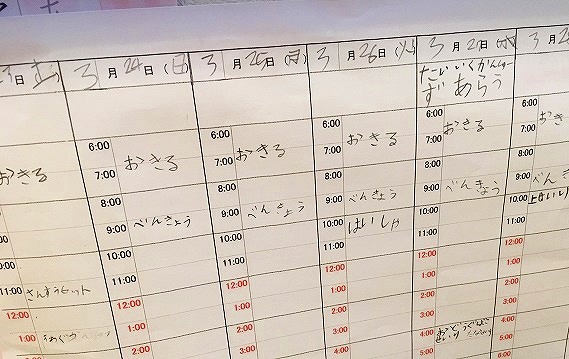 3(土)
3月24日(日)
3月25日(月)
3月26日(火)
3月27日(水)
3月2
たいいくかんシューズ あらう
おきる
11:00 さんすうセット
12:00
1:00
6:00
7:00 おきる
8:00
9:00 べんきょう
10:00
11:00
12:00
1:00
2:00
6:00
7:00 おきる
8:00
9:00 べんきょう
10:00
11:00
12:00
1:00
2:00
3:00
6:00
7:00 おきる
8:00
9:00 べんきょう
10:00 はいしゃ
11:00
12:00
1:00
2:00
3:00
6:00
7:00 おきる
8:00
9:00 べんきょう
10:00
11:00
12:00
1:00
2:00
3:00
4:00
5:00
6:00
7:00 おき
8:00
9:00 べんき
10:00
11:00
12:00
1:00
2:00
3:00
4:00